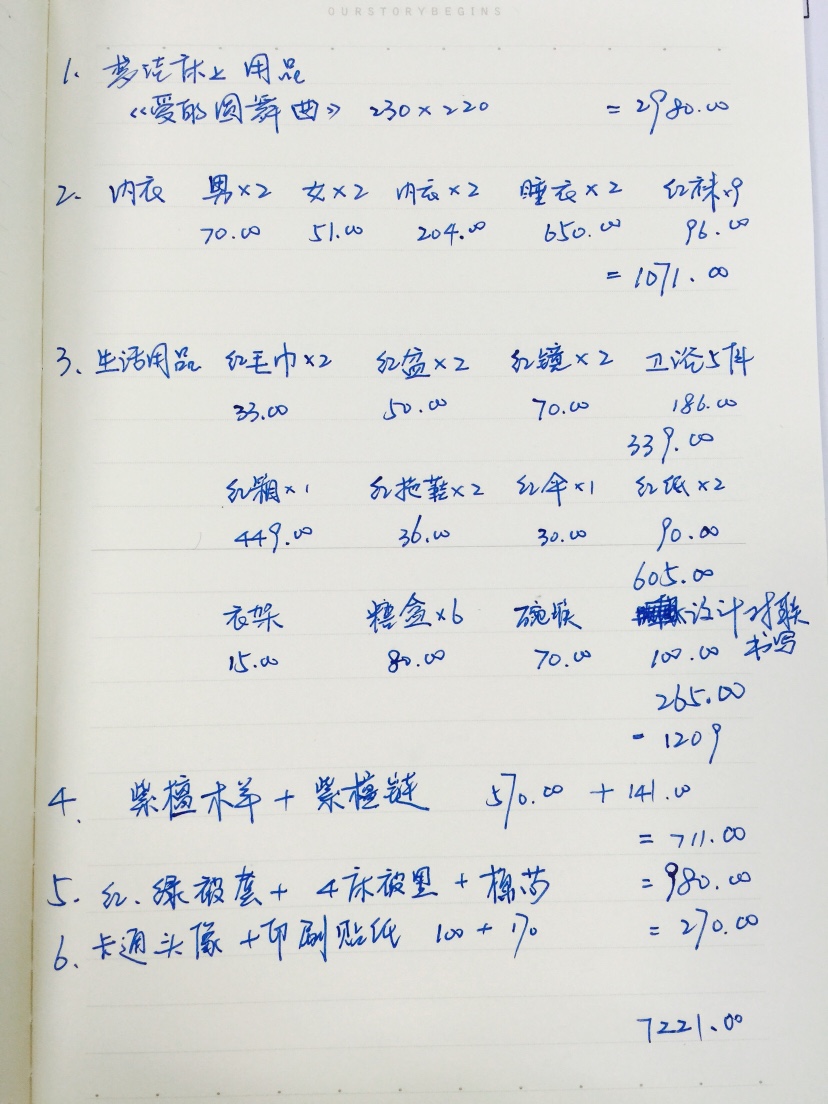 OURSTORYBEGINS
1. 梦洁床上用品
《爱的圆舞曲》 230×220 =2980.00
2. 内衣 男×2 女×2 内衣×2 睡衣×2 红袜×9
70.00 51.00 204.00 650.00 96.00
=1071.00
3. 生活用品 红毛巾×2 红盆×2 红镜×2 卫浴5件
33.00 50.00 70.00 186.00
339.00
红箱×1 红拖鞋×2 红伞×1 红纸×2
449.00 36.00 30.00 90.00
605.00
衣架 糖盒×6 碗筷 设计对联
15.00 80.00 70.00 100.00 书写
265.00
=1209
4. 紫檀木羊+紫檀链 570.00 + 141.00
=711.00
5. 红、绿被套+4床被里+棉芯 =980.00
6. 卡通头像+印刷贴纸 100+170 =270.00
7221.00